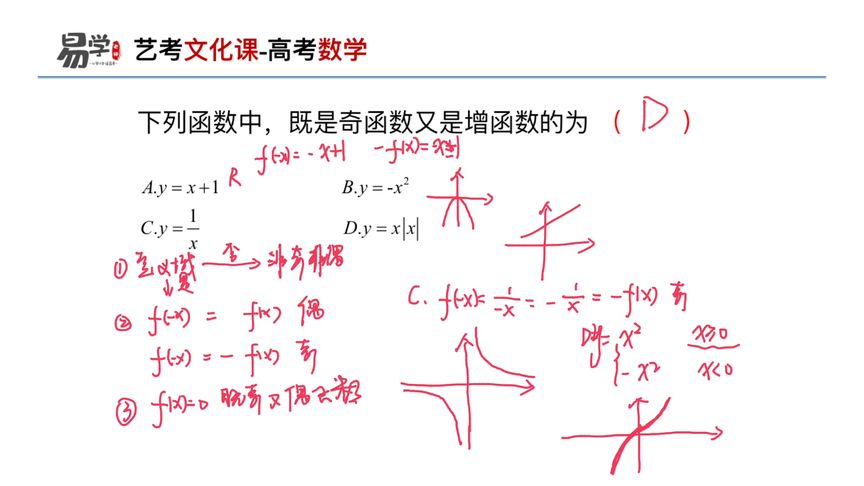 易学
艺考文化课-高考数学
下列函数中，既是奇函数又是增函数的为 （ D ）
f(-x)= -x+1 -f(x)=
A.y = x+1 R B.y = -x²
C.y = 1/x D.y = x|x|
① 定义域 否→ 非奇非偶
↓是
② f(-x) = f(x) 偶
f(-x) = - f(x) 奇
③ f(x)=0 既奇又偶函数
C. f(-x)= 1/-x = - 1/x = -f(x) 奇
D y= { x² x≥0
-x² x<0